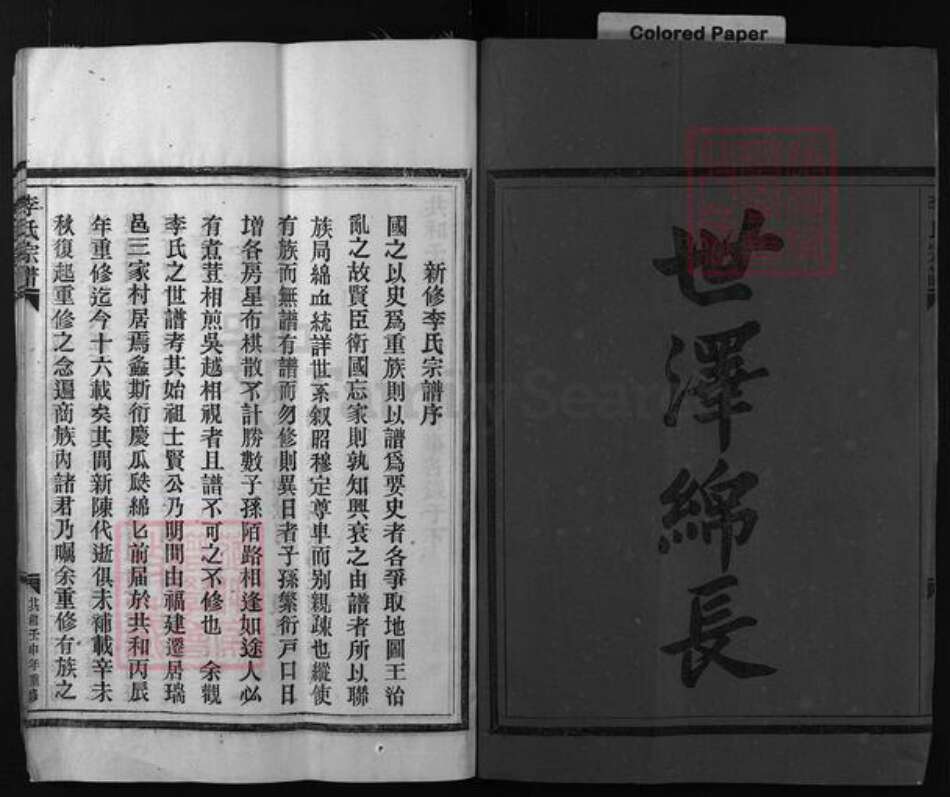 Colored Paper
世澤綿長
新修李氏宗譜序
國之以史爲重族則以譜爲要史者各爭取地圖王治
亂之故賢臣衛國忘家則孰知興衰之由譜者所以聯
族局綿血統詳世系叙昭穆定尊卑而别親疎也縱使
有族而無譜有譜而勿修則異日者子孫繁衍戸口日
增各房星布棋散不計勝數子孫陌路相逢如途人必
有煮荳相煎吳越相視者且譜不可之不修也　余觀
李氏之世譜考其始祖士賢公乃明間由福建遷居瑞
邑三家村居焉螽斯衍慶瓜瓞綿匕前届於共和丙辰
年重修迄今十六載矣其間新陳代逝俱未補載辛未
秋復起重修之念遍商族內諸君乃囑余重修有族之
李氏宗譜
共和壬申年重修